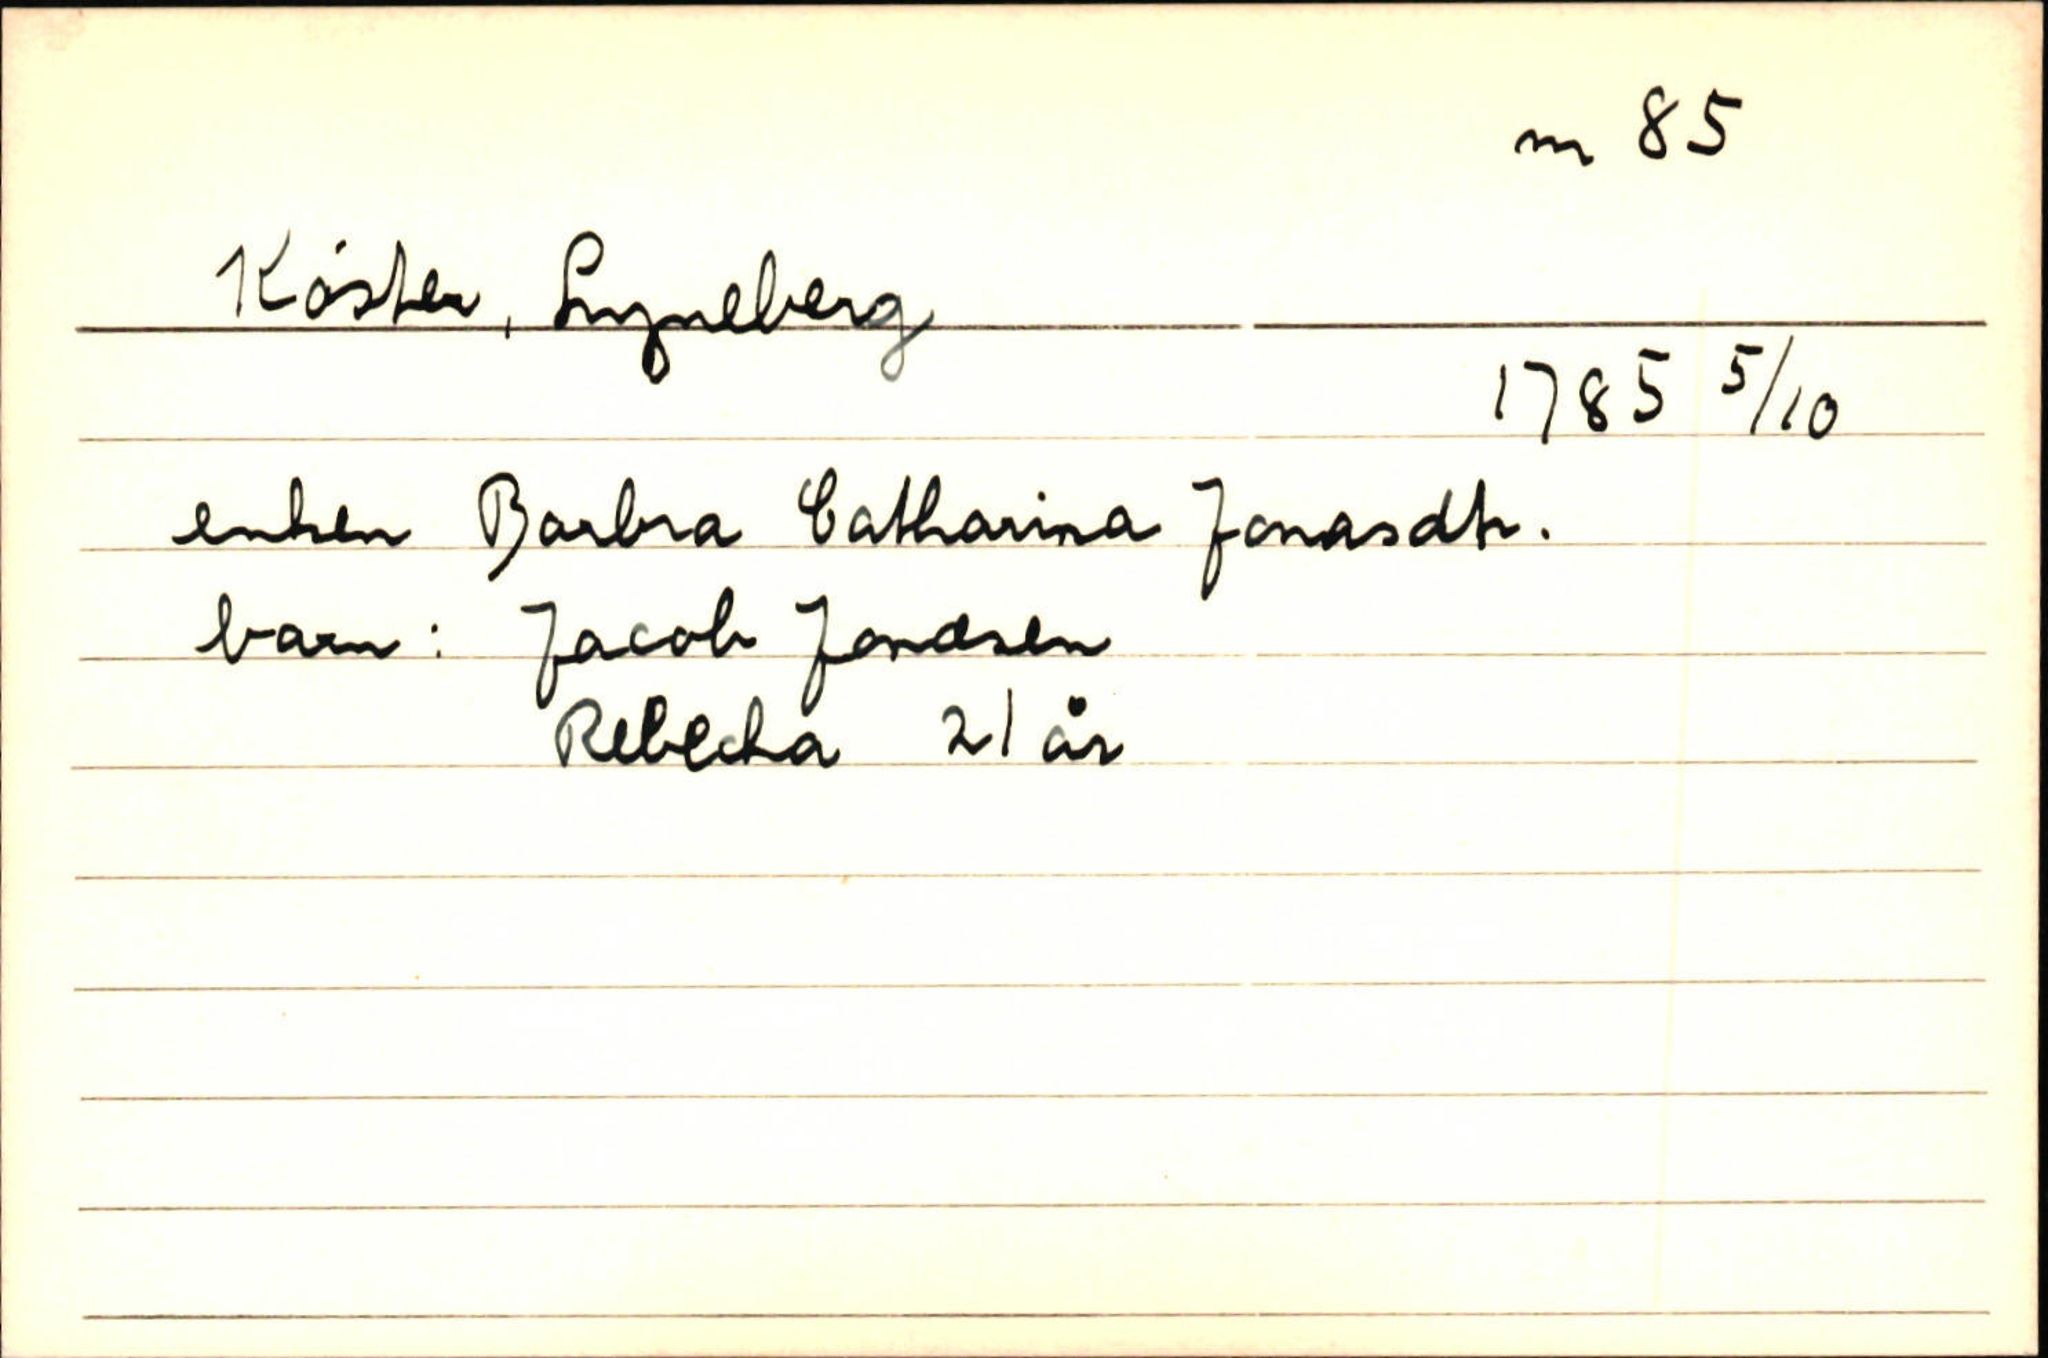 m 85
Köster, Lyneberg
1785 5/10
enken Barbra Catharina Jonasdtr.
barn: Jacob Jonasen
Rebecha 21 år